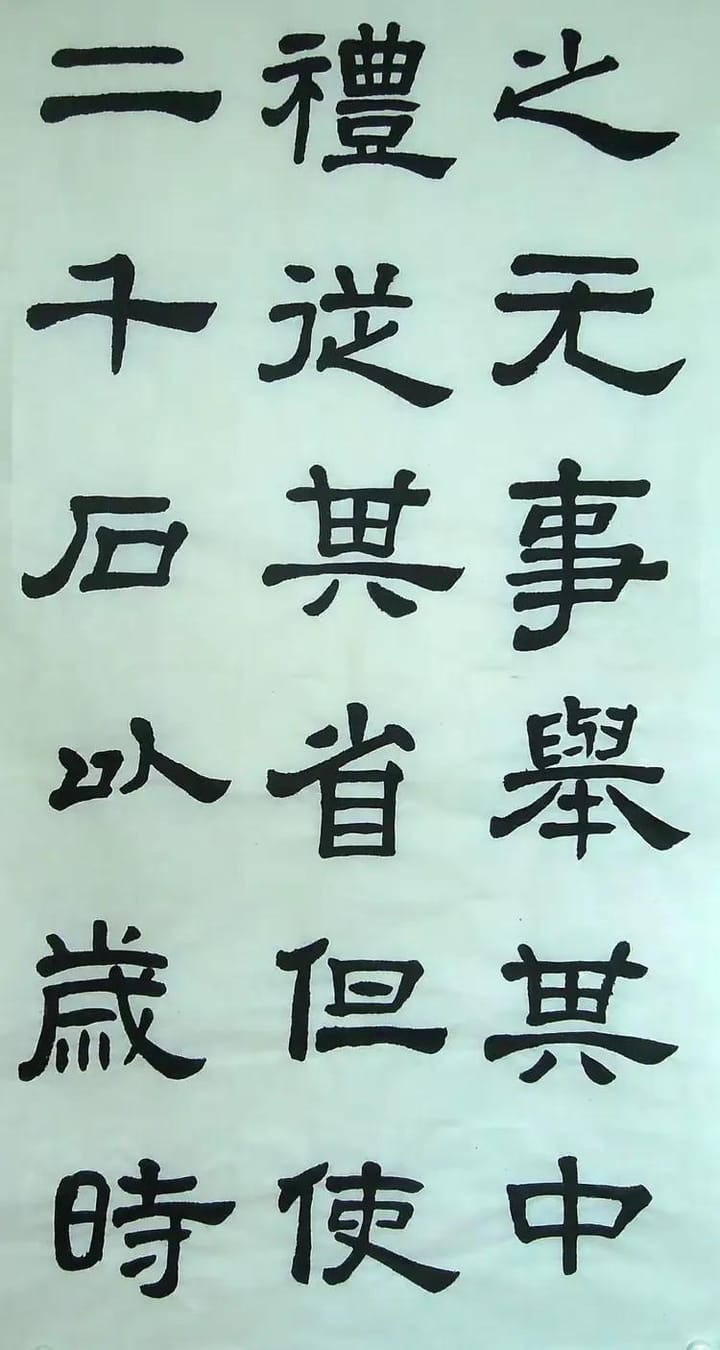 之无事舉其中
禮從其省但使
二千石以歲時